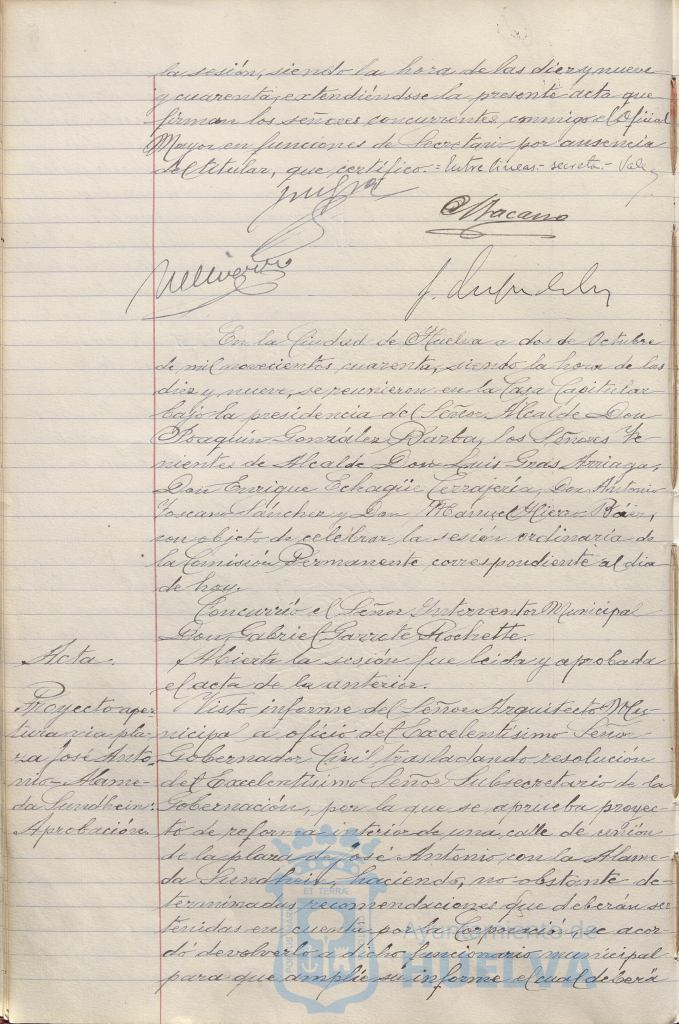 la sesión, siendo la hora de las diez y nueve
y cuarenta, extendiéndose la presente acta que
firman los señores concurrentes, conmigo el Oficial
Mayor en funciones de Secretario por ausencia
del titular, que certifico.=Entre lineas.-secreta.-Vale
En la Ciudad de Huelva a dos de Octubre
de mil novecientos cuarenta, siendo la hora de las
diez y nueve, se reunieron en la Casa Capitular
bajo la presidencia del Señor Alcalde Don
Joaquín González Barba, los Señores Te-
nientes de Alcalde Don Luis Gras Arriaga,
Don Enrique Echagüe Cerrajería, Don Antonio
Toscano Sánchez y Don Manuel Hierro
con objeto de celebrar la sesión ordinaria de
la Comisión Permanente correspondiente al dia
de hoy.
Concurrió el Señor Interventor Municipal
Don Gabriel Garrote Rochette.
Acta.
Abierta la sesión fue leida y aprobada
el acta de la anterior.
Proyecto aper
tura via pla-
za José Anto
nio-Alame-
da Sundhein.
Aprobación.
Visto informe del Señor Arquitecto Mu-
nicipal a oficio del Excelentísimo Señor
Gobernador Civil trasladando resolución
del Excelentísimo Señor Subsecretario de la
Gobernación, por la que se aprueba proyec-
to de reforma interior de una calle de unión
de la plaza de José Antonio, con la Alame-
da Sundhein, haciendo, no obstante de-
terminadas recomendaciones que deberán ser
tenidas en cuenta por la Corporación, se acor-
dó devolverlo a dicho funcionario municipal
para que amplíe su informe el cual deberá
ET TERRAE
Ayuntamiento de
HUELVA